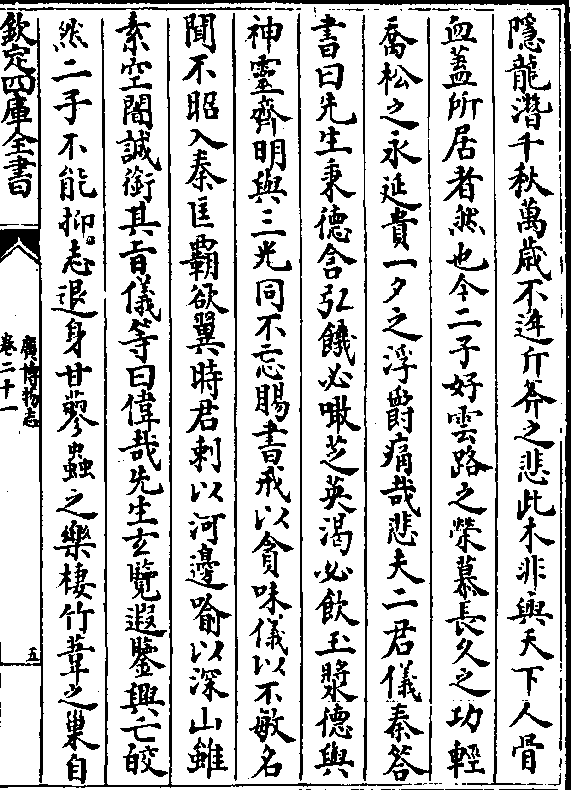 隱龍潛千秋萬歲不逢斤斧之悲此木非與天下人骨
血蓋所居者然也今二子好雲路之榮慕長久之功輕
喬松之永延貴一夕之浮爵痛哉悲夫二君儀秦答
書曰先生秉德含弘饑必噉芝英渴必飲玉漿德與
神靈齊明與三光同不忘賜書戒以貪味儀以不敏名
聞不昭入秦匡霸欲翼時君刺以河邊喻以深山雖
素空闇誠銜其旨儀等曰偉哉先生玄覽遐鑒興亡皎
然二子不能抑志退身甘蓼蟲之樂棲竹葦之巢自
欽定四庫全書
廣博物志
卷二十一
五